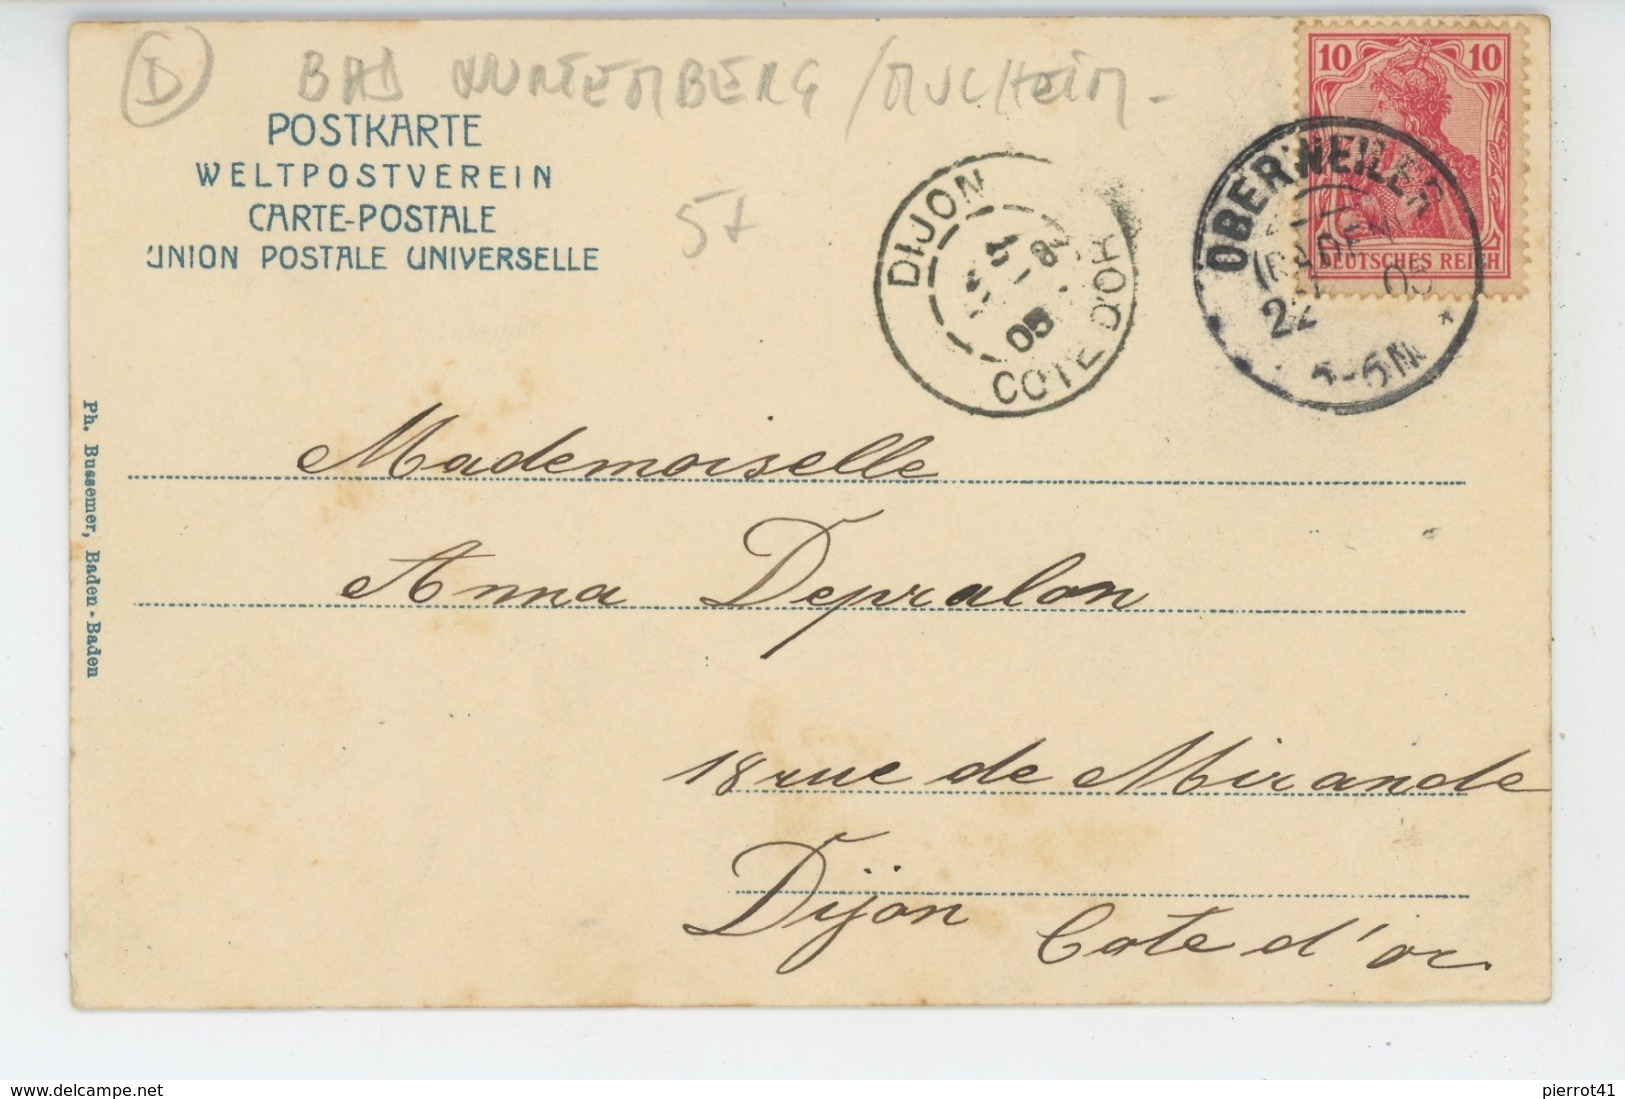 D
BAD WURTEMBERG / MULHEIM -
POSTKARTE
WELTPOSTVEREIN
CARTE-POSTALE
UNION POSTALE UNIVERSELLE
10 10
DEUTSCHES REICH
OBERWEILER
(BADEN)
22 05
5-6N
DIJON
05
COTE D'OR
Ph. Bussemer, Baden-Baden
Mademoiselle
Anna Depralon
18 rue de Mirande
Dijon Cote d'or
pierrot41